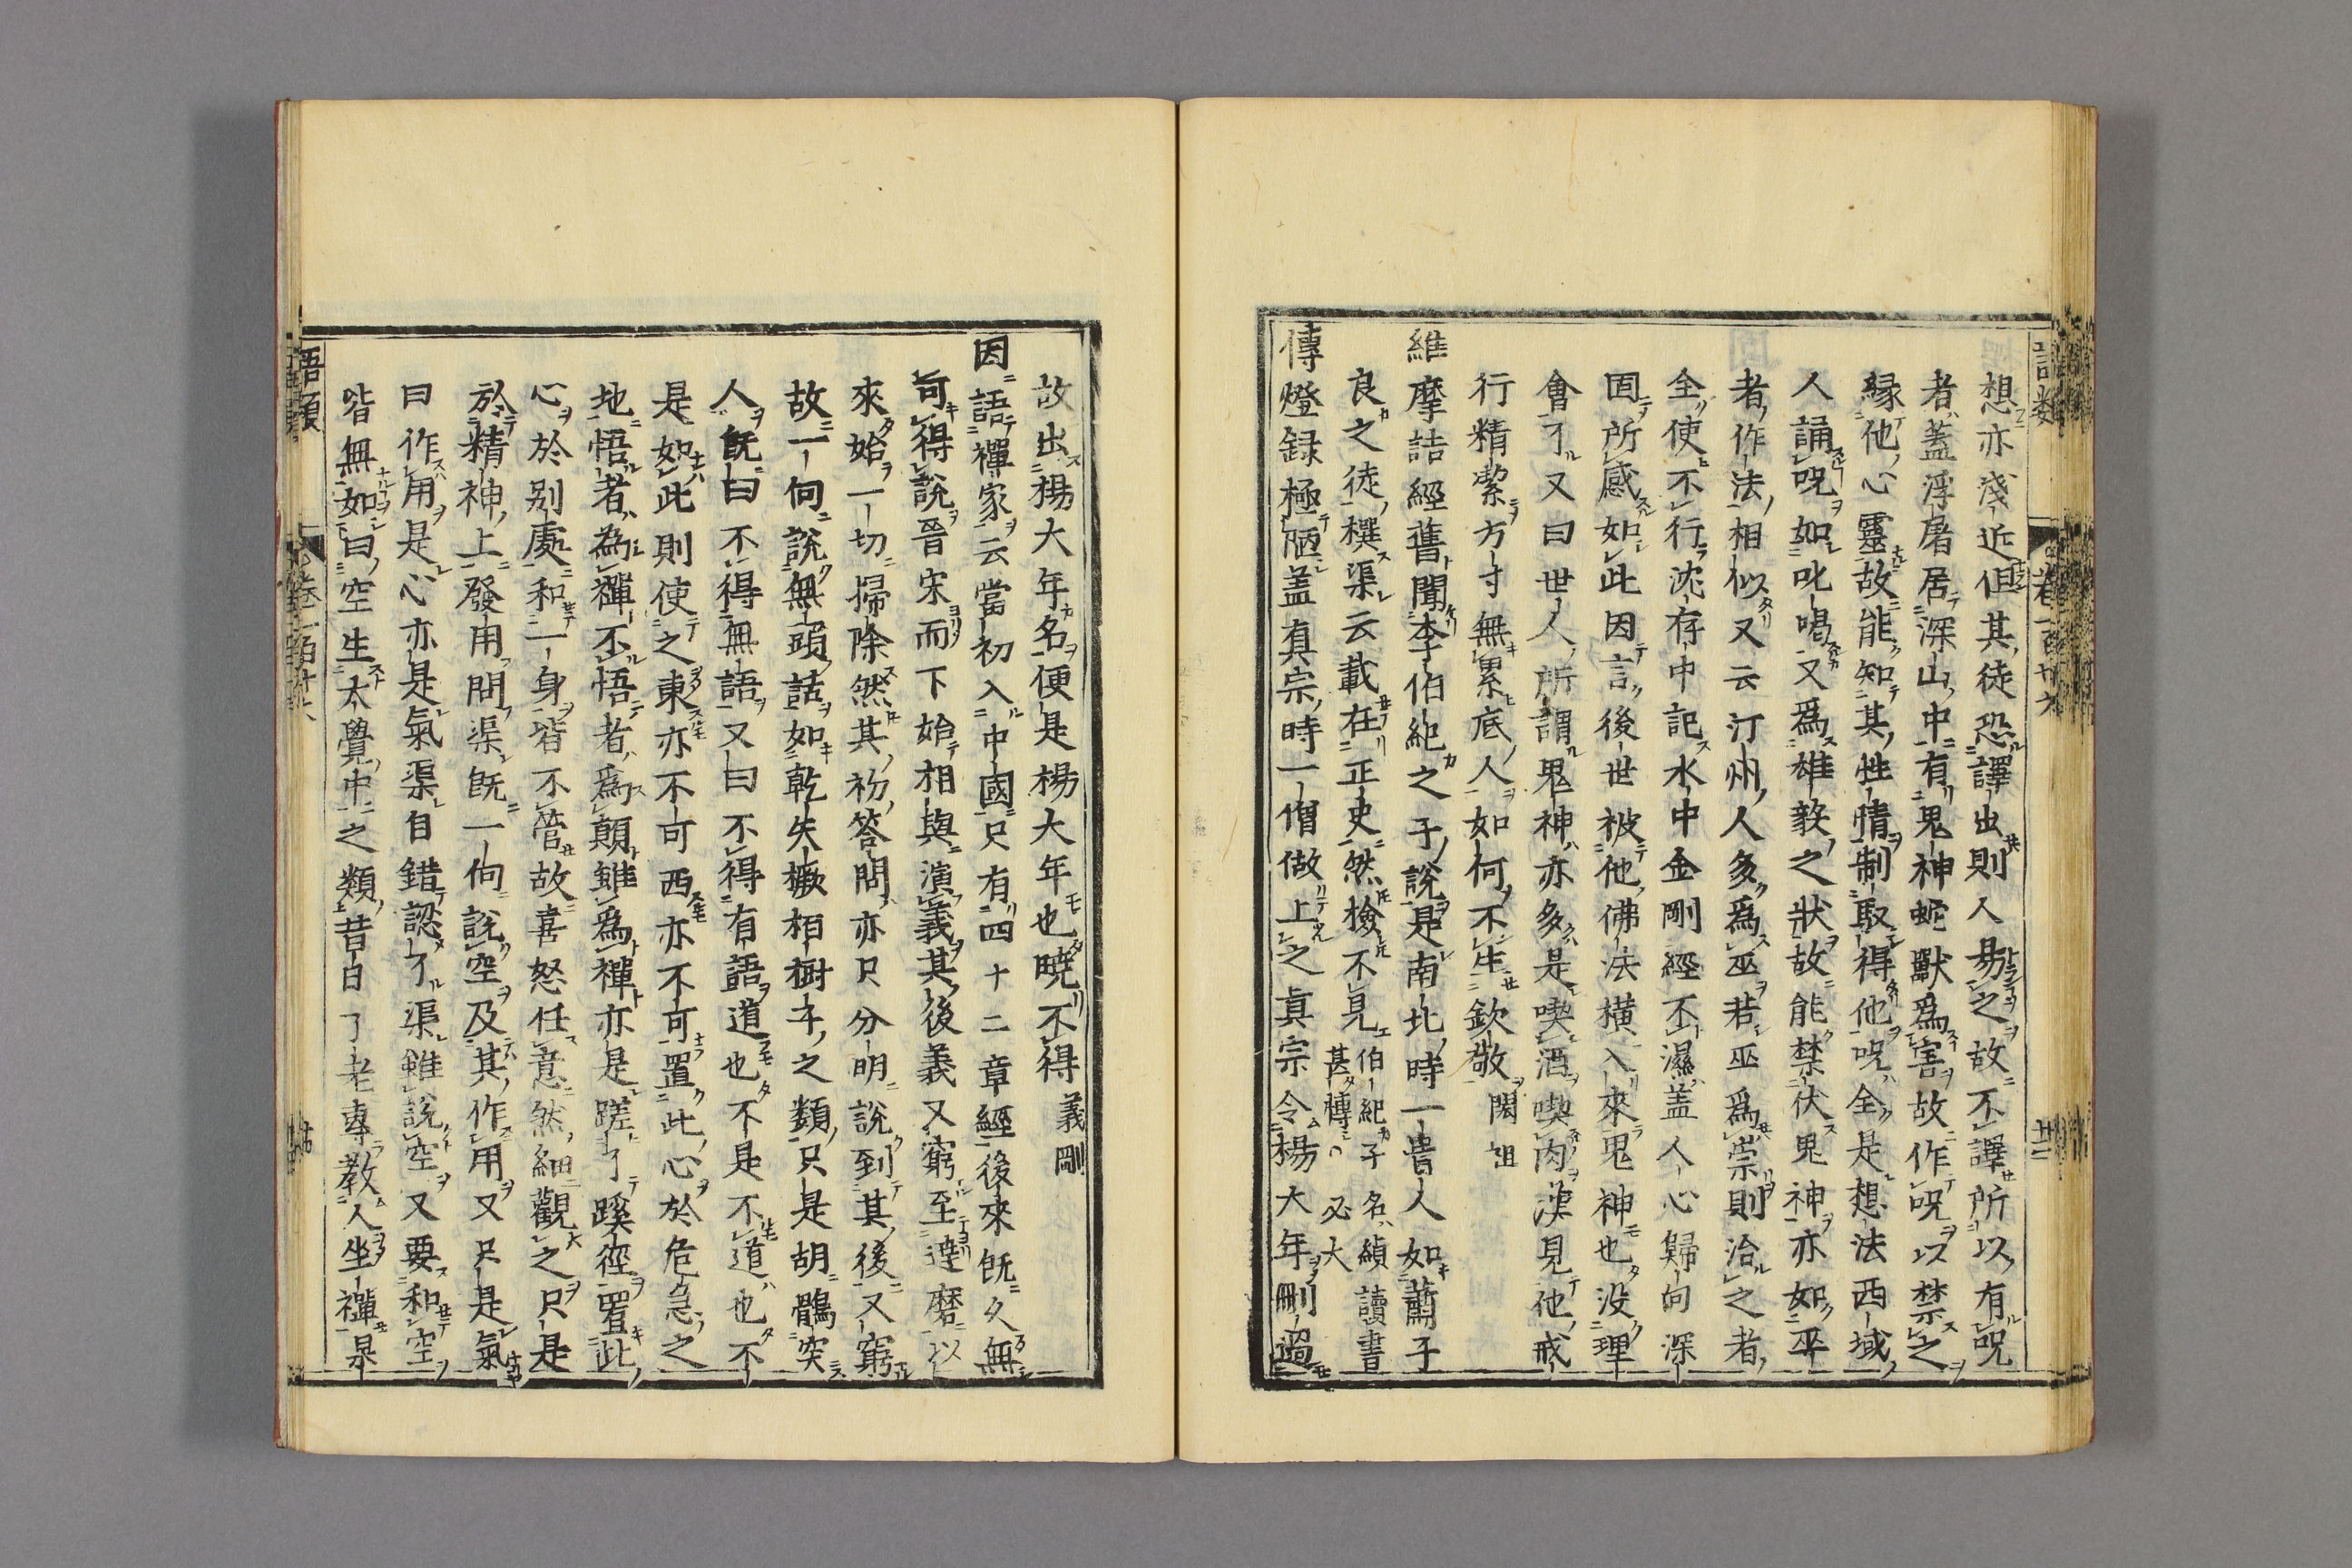 想亦淺近但其徒恐譯出則人易之故不譯所以有呪
者蓋浮屠居深山中有鬼神蛇獸爲害故作呪以禁之
緣他心靈故能知其性情制馭得他呪全是想法西域
人誦呪如叱喝又爲雄毅之狀故能禁伏鬼神亦如巫
者作法相似又云汀州人多爲巫若巫爲祟則治之者
全使不行沈存中記水中金剛經不濕蓋人心歸向深
固所感如此因言後世被他佛法橫入來鬼神也没理
會了又曰世人所謂鬼神亦多是喫酒喫肉漢見他戒
行精潔方寸無累底人如何不生欽敬 閎祖
維摩詰經舊聞李伯紀之子說是南北時一貴人如蕭子
良之徒撰渠云載在正史然檢不見 伯紀子名縝讀書甚博 必大
傳燈録極陋蓋真宗時一僧做上之真宗令楊大年刪過
故出楊大年名便是楊大年也曉不得 義剛
因語禪家云當初入中國只有四十二章經後來既久無
可得說晉宋而下始相與演義其後義又窮至達磨以
來始一切掃除然其初答問亦只分明說到其後又窮
故一向說無頭話如乾矢橛柏樹子之類只是胡鶻突
人既曰不得無語又曰不得有語道也不是不道也不
是如此則使之東亦不可西亦不可置此心於危急之
地悟者為禪不悟者爲顛雖爲禪亦是蹉了蹊徑置此
心於別處和一身皆不管故喜怒任意然細觀之只是
於精神上發用問渠既一向說空及其作用又只是氣
曰作用是心亦是氣渠自錯認了渠雖說空又要和空
皆無如曰空生大覺中之類昔日了老專教人坐禪杲
語類
卷一百廿六